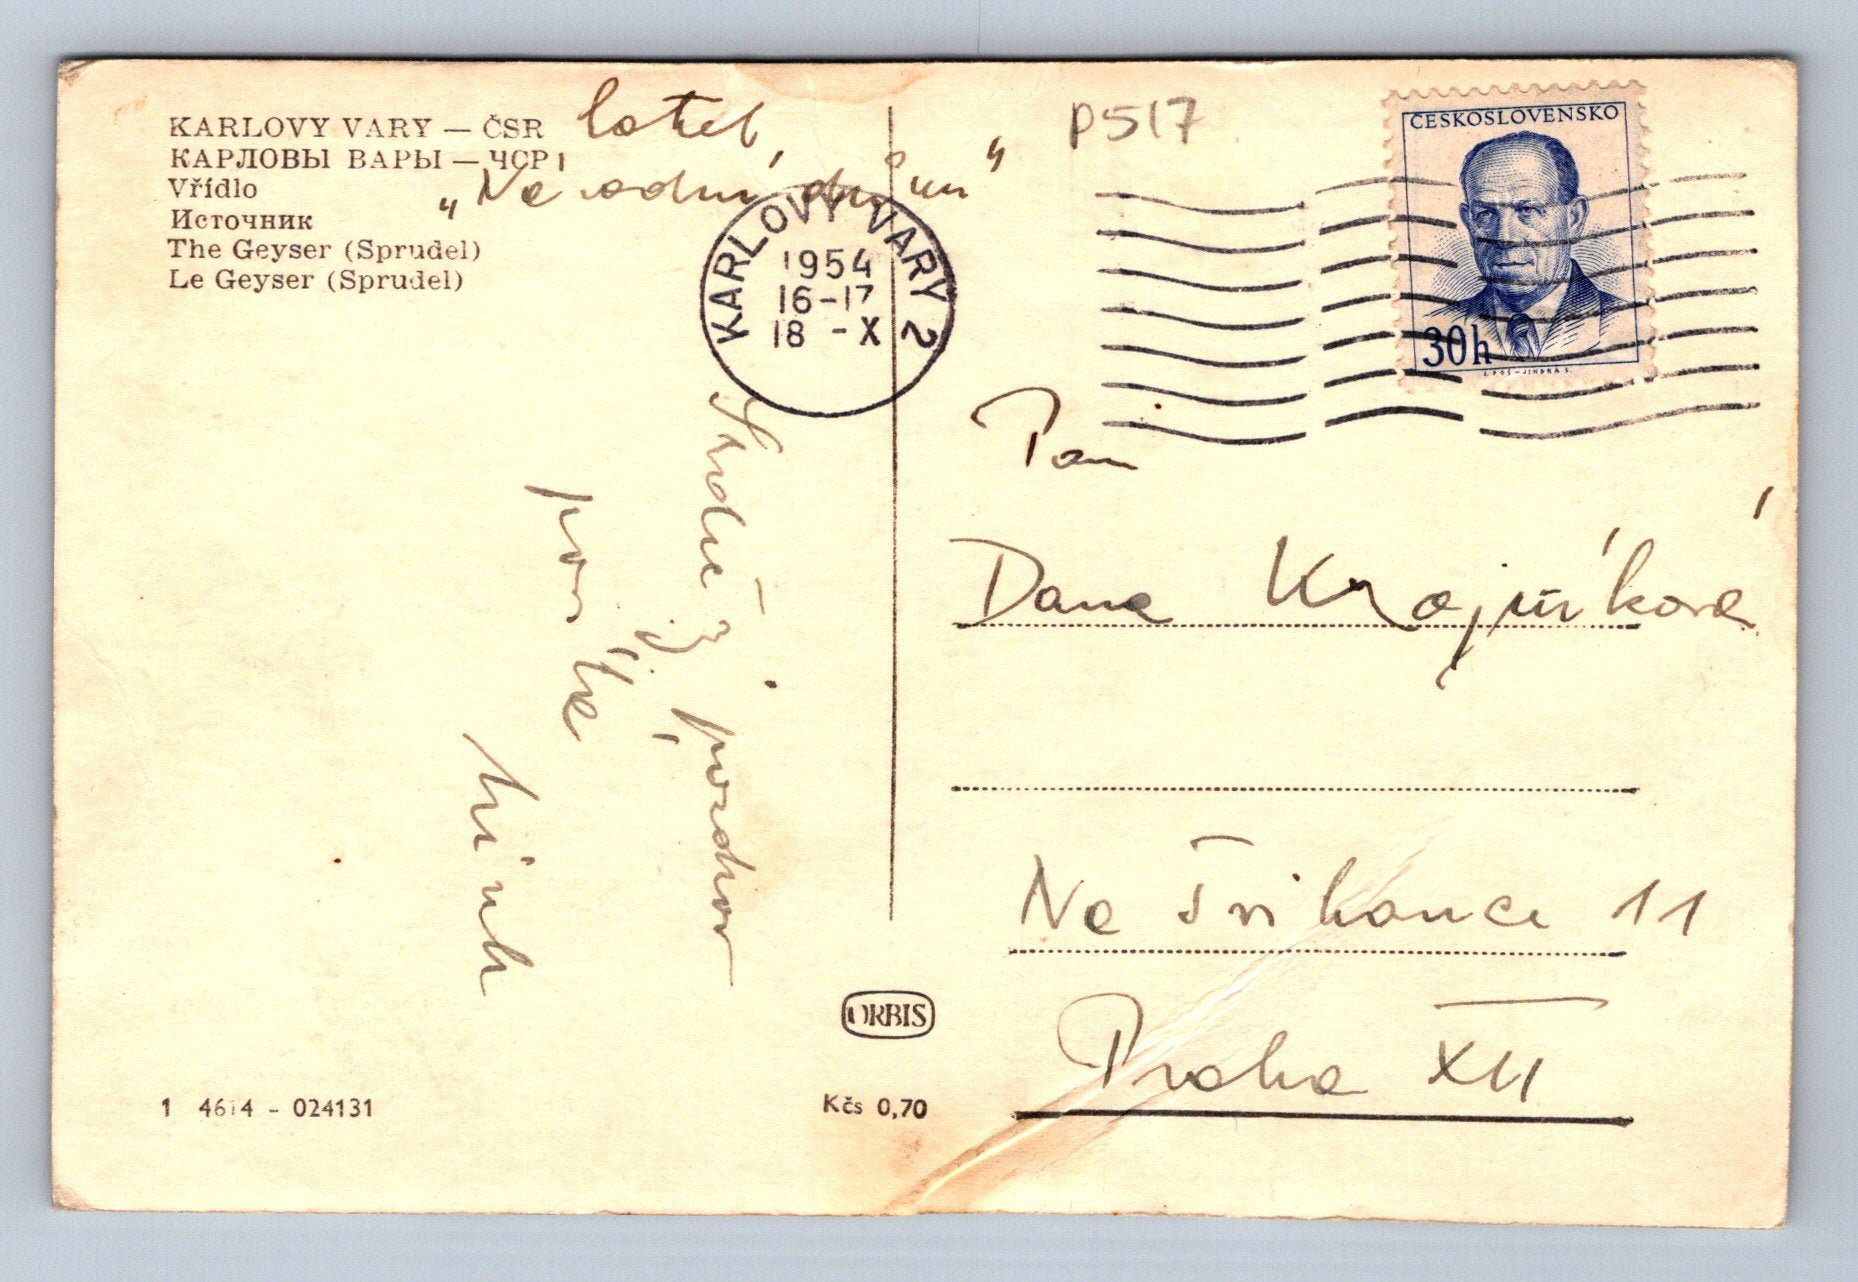 KARLOVY VARY — ČSR
КАРЛОВЫ ВАРЫ — ЧСР
Vřídlo
Источник
The Geyser (Sprudel)
Le Geyser (Sprudel)
hotel
„Národní dům"
P517
ČESKOSLOVENSKO
30h
KARLOVY VARY 2
1954
16-17
18 -X
Srdečný pozdrav
posílá
Paní
Dana Krajníková
Na Švihance 11
Praha XII
ORBIS
1 4614 - 024131
Kčs 0,70